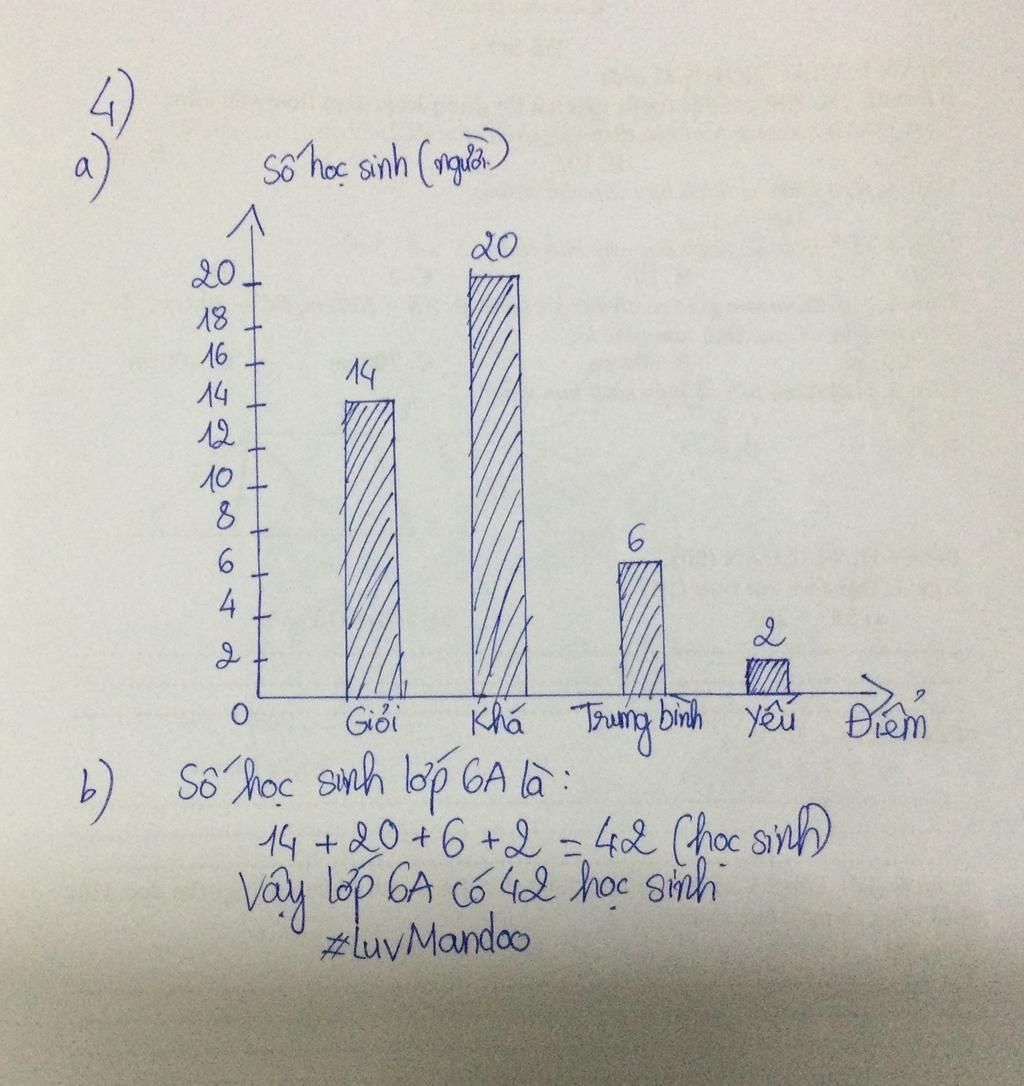 4)
a)
Số học sinh (người)
20
20
18
16
14
14
12
10
8
6
6
4
2
2
0
Giỏi Khá Trung bình Yếu Điểm
b) Số học sinh lớp 6A là:
14 + 20 + 6 + 2 = 42 (học sinh)
Vậy lớp 6A có 42 học sinh
#LuvMandoo